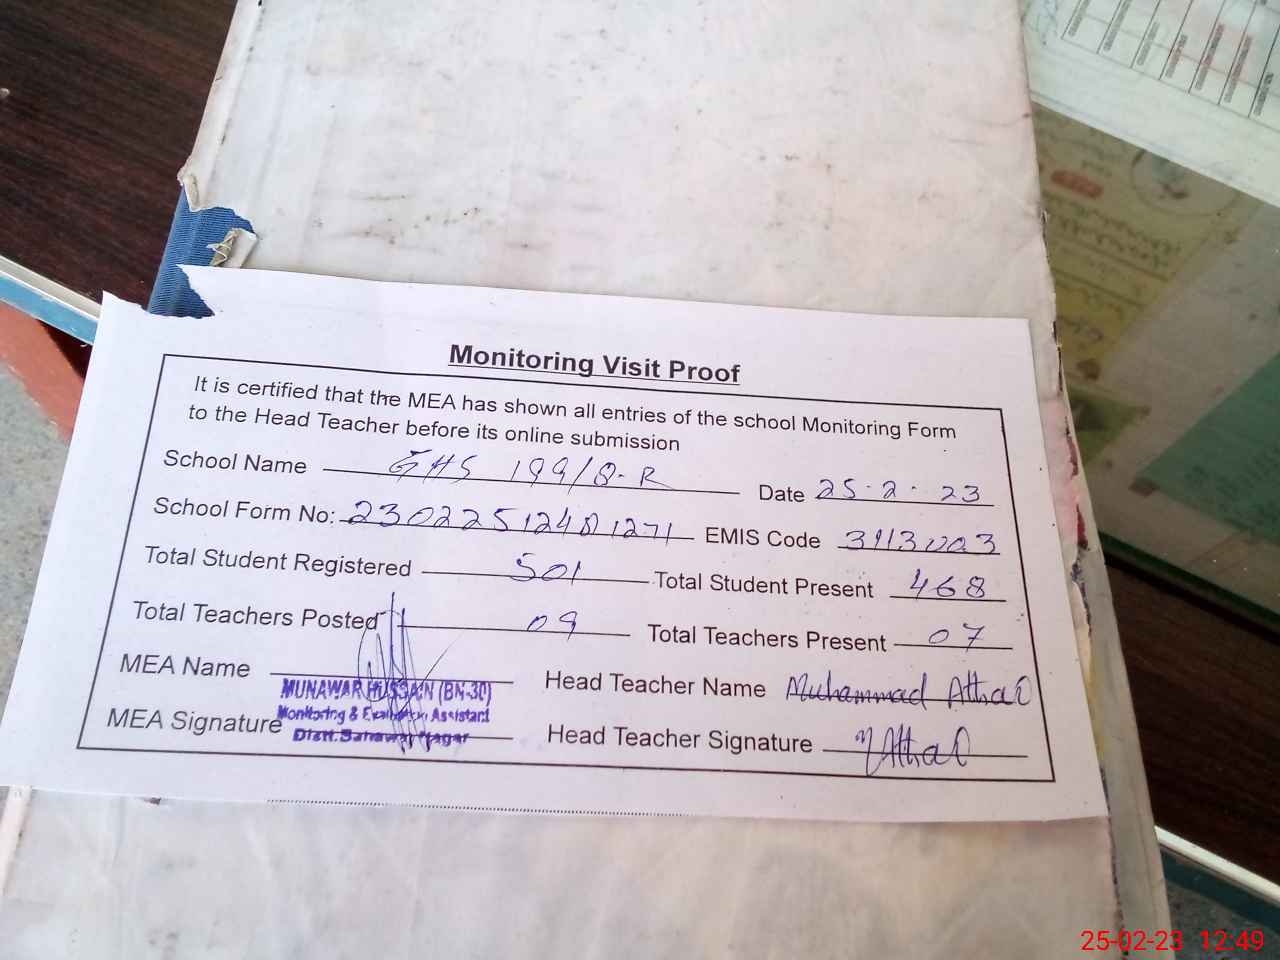 Monitoring Visit Proof
It is certified that the MEA has shown all entries of the school Monitoring Form
to the Head Teacher before its online submission
School Name GHS 199/8-R Date 25-2-23
School Form No: EMIS Code
Total Student Registered 501 Total Student Present 468
Total Teachers Posted 09 Total Teachers Present 07
MEA Name MUNAWAR HUSSAIN (BN-30) Head Teacher Name Muhammad
Monitoring & Evaluation Assistant
MEA Signature Distt. Bahawal Nagar Head Teacher Signature
25-02-23 12:49